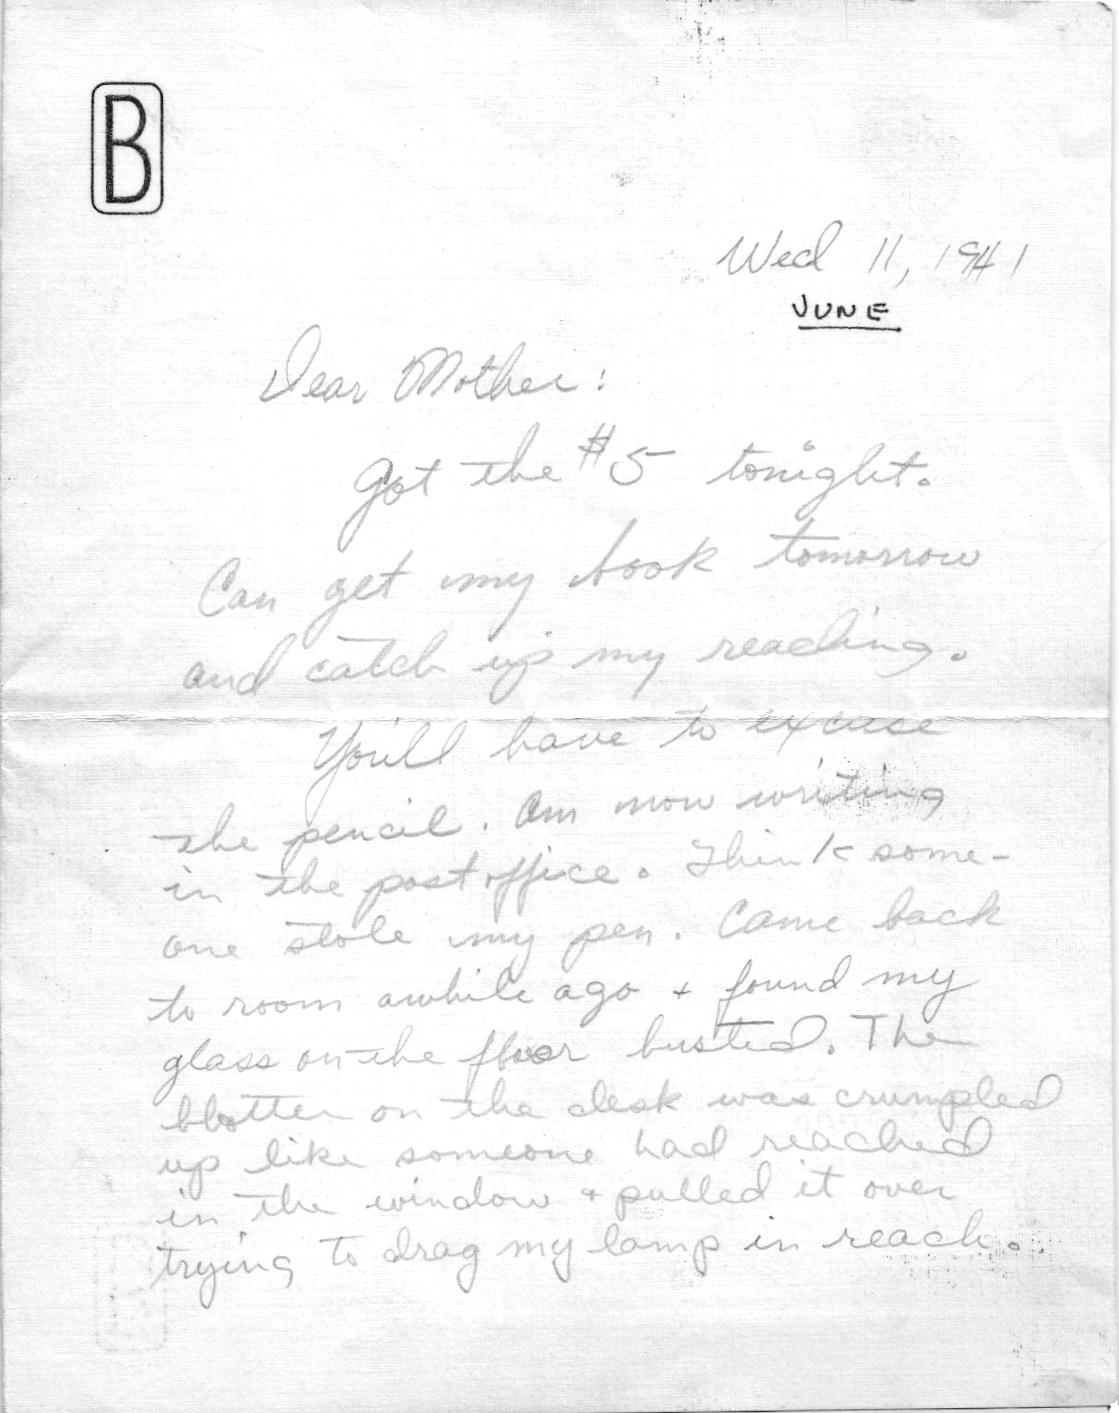 B
Wed 11, 1941
JUNE
Dear Mother:
Got the $5 tonight.
Can get my book tomorrow
and catch up my reading.
You'll have to excuse
the pencil. Am now writing
in the post office. Think some-
one stole my pen. Came back
to room awhile ago + found my
glass on the floor busted. The
blotter on the desk was crumpled
up like someone had reached
in the window + pulled it over
trying to drag my lamp in reach.